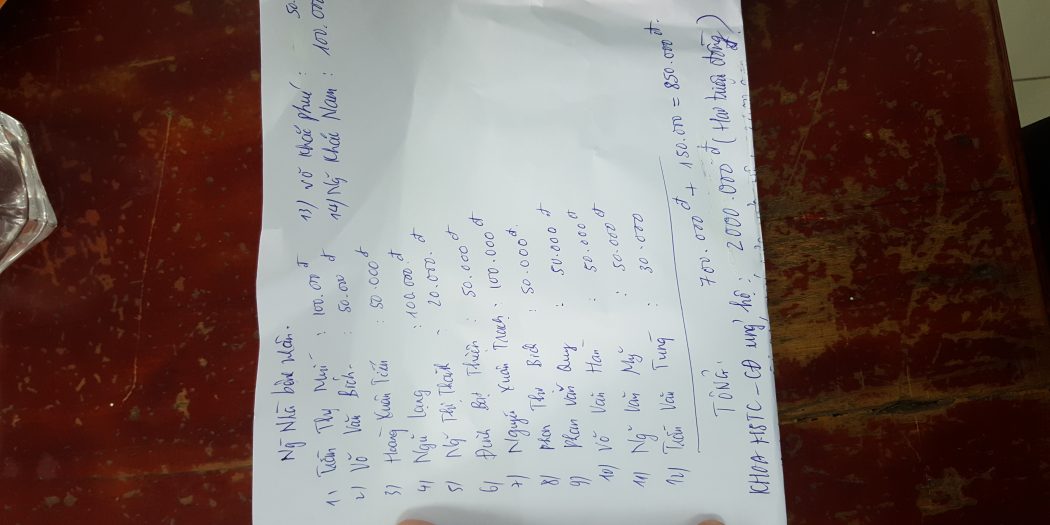 Ng̃ Nhà bệnh nhân.
1) Trần Thy Như : 100.000 đ
2) Võ Văn Bích : 50.000 đ
3) Hoàng Xuân Tiến : 50.000 đ
4) Ngũ Lạng : 100.000 đ
5) Ng̃ Thị Thành : 20.000 đ
6) Đinh Bạt Thiên : 50.000 đ
7) Nguyễn Xuân Trạch : 100.000 đ
8) Phan Thư Bích : 50.000 đ
9) Phan Văn Quy : 50.000 đ
10) Võ Văn Hán : 50.000 đ
11) Ng̃ Văn Mỹ : 50.000 đ
12) Trần Văn Tùng : 30.000
13) Võ Khắc Phú : 50.
14) Ng̃ Khắc Nam : 100.000
TỔNG: 700.000 đ + 150.000 = 850.000 đ.
KHOA HSTC - CĐ ủng hộ : 2000.000 đ (Hai triệu đồng)